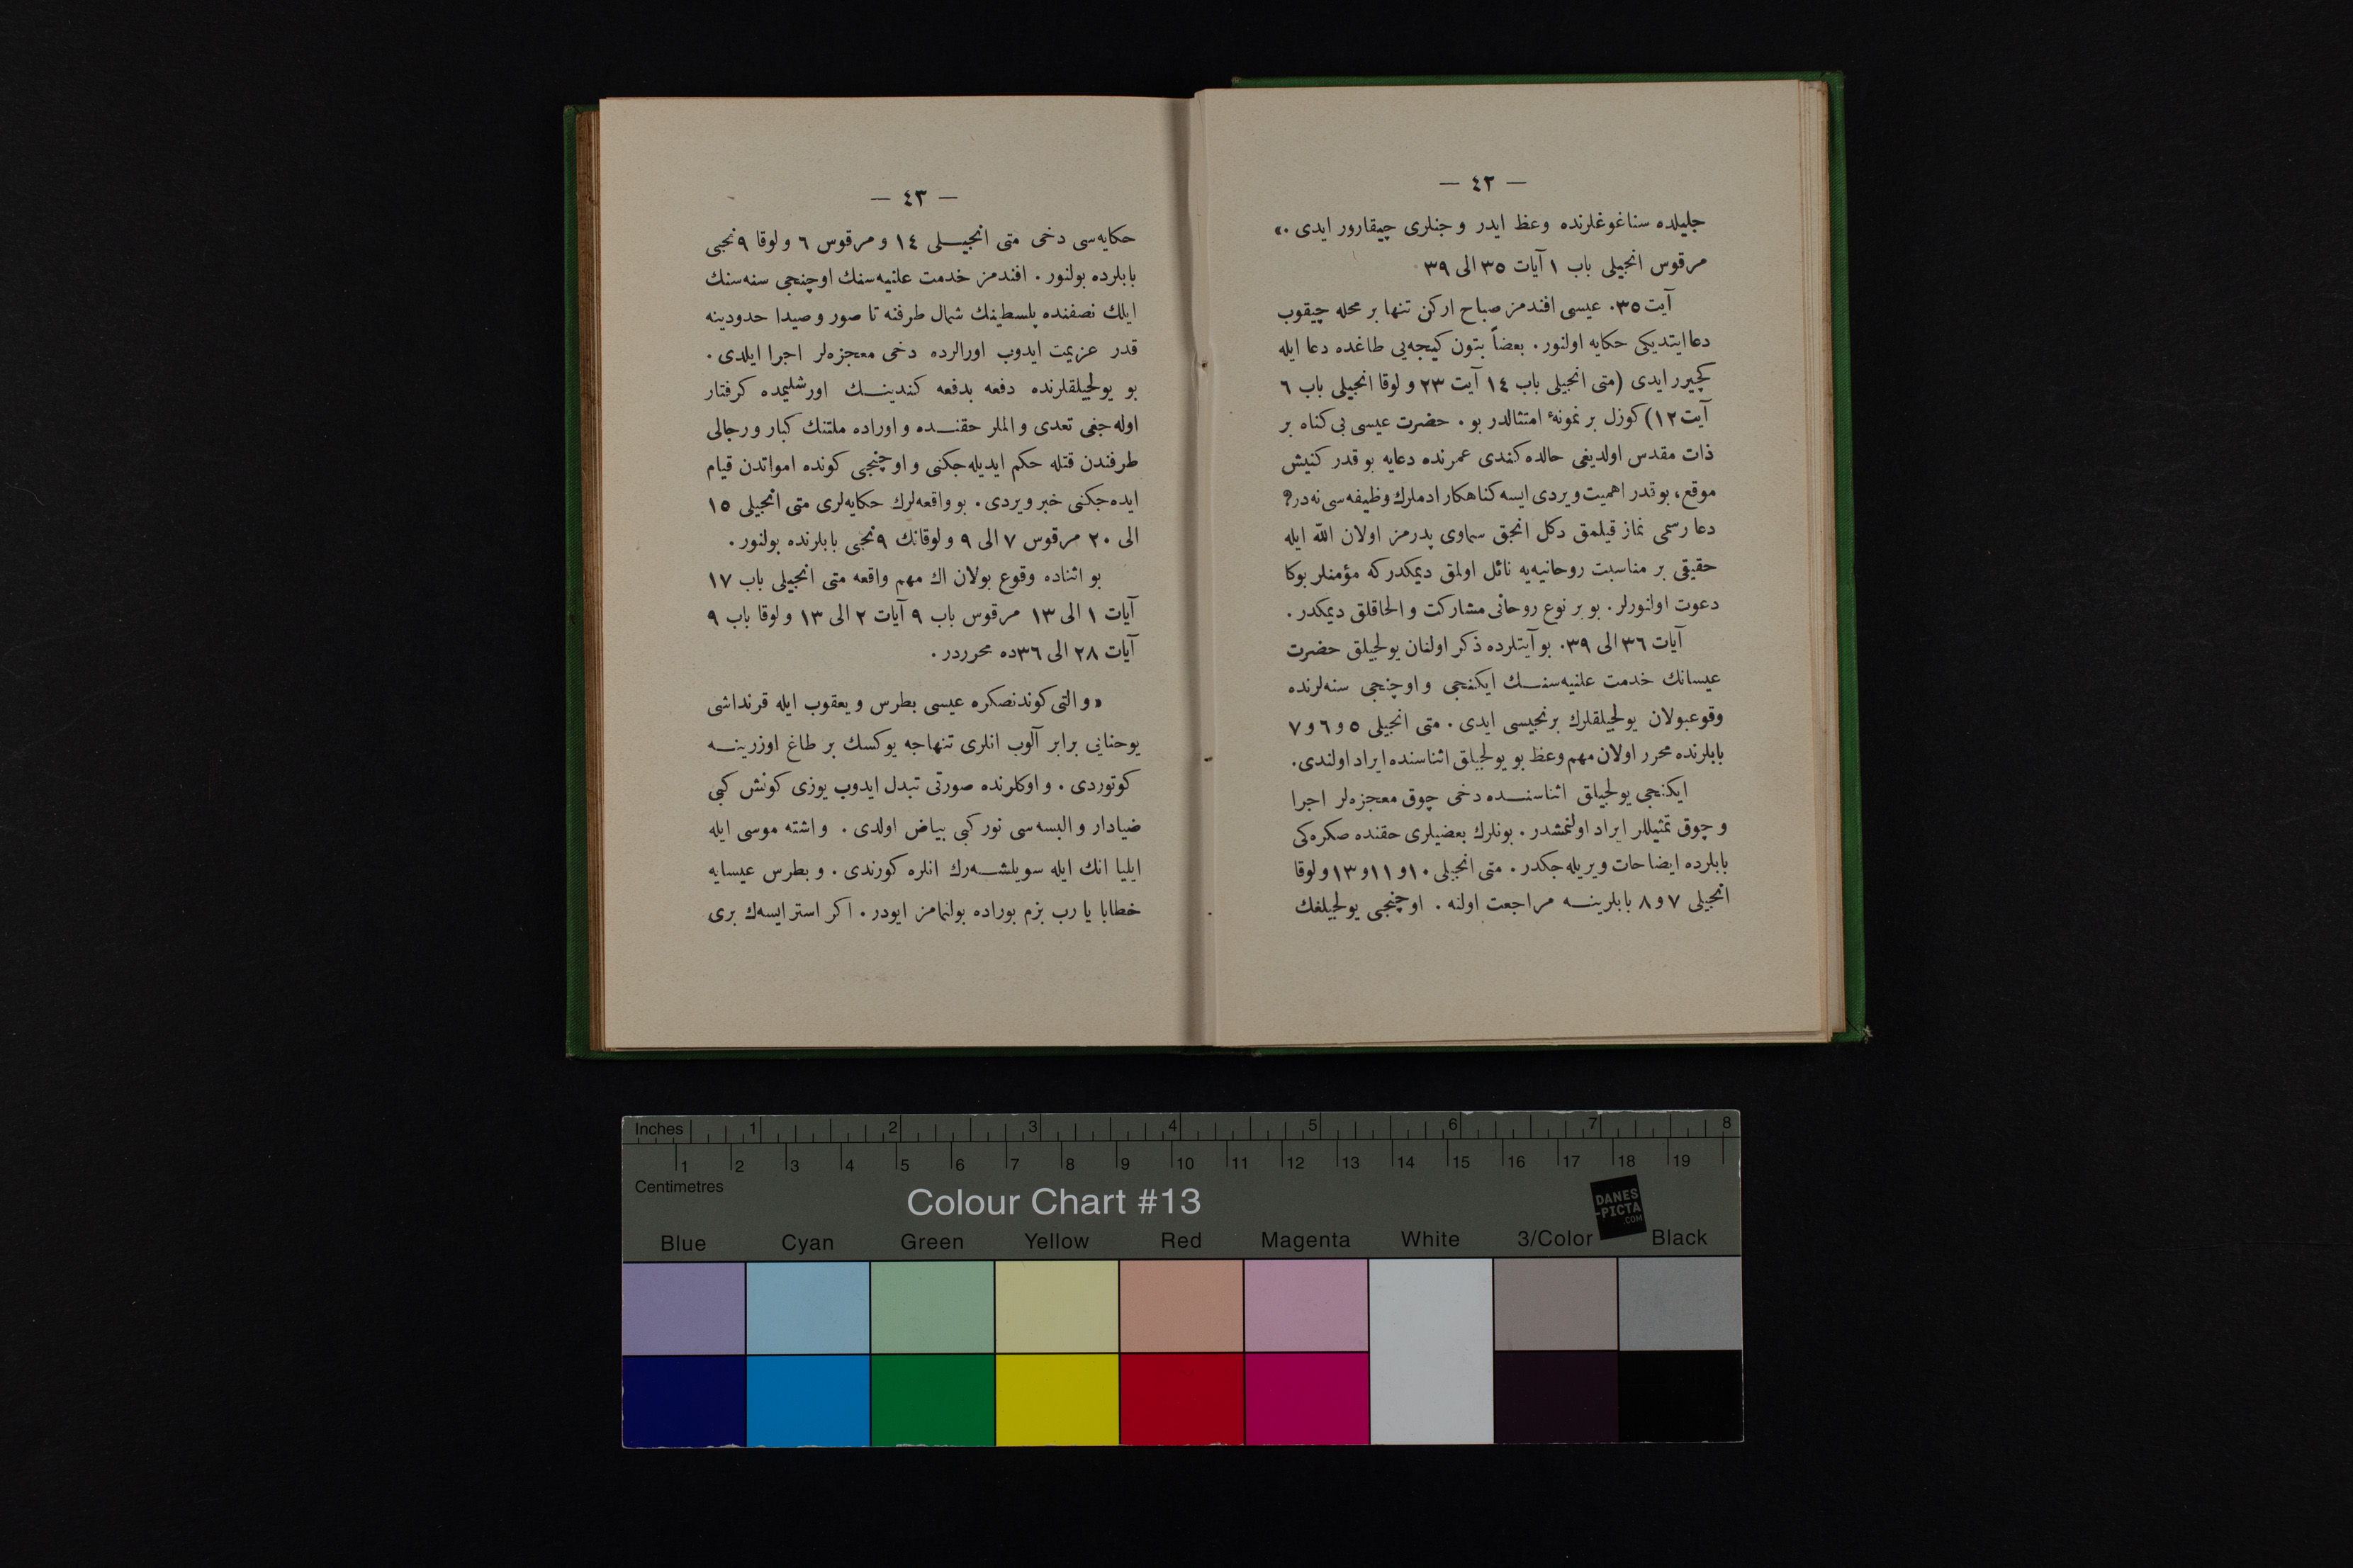 — ٤٢ —
جليلده سناغوغلرنده وعظ ايدر و جنلرى چيقارور ايدى ٠»
مرقوس انجيلى باب ١ آيات ٣٥ الى ٣٩
آيت ٣٥٠ عيسى افندمز صباح اركن تنها بر محله چيقوب
دعا ايتديكى حكايه اولنور ٠ بعضاً بتون كيجه‌يى طاغده دعا ايله
كچيرر ايدى (متى انجيلى باب ١٤ آيت ٢٣ و لوقا انجيلى باب ٦
آيت ١٢) كوزل بر نمونهٔ امتثالدر بو ٠ حضرت عيسى بى كناه بر
ذات مقدس اولديغى حالده كندى عمرنده دعايه بو قدر كنيش
موقع، بو قدر اهميت ويردى ايسه كناهكار ادملرك وظيفه‌سى نه‌در؟
دعا رسمى نماز قيلمق دكل انجق سماوى پدرمز اولان الله ايله
حقيقى بر مناسبت روحانيه‌يه نائل اولمق ديمكدركه مؤمنلر بوكا
دعوت اولنورلر ٠ بو بر نوع روحانى مشاركت و الحاقلق ديمكدر ٠
آيات ٣٦ الى ٣٩٠ بو آيتلرده ذكر اولنان يولجيلق حضرت
عيسانك خدمت علنيه‌سنك ايكنجى و اوچنجى سنه‌لرنده
وقوعبولان يولجيلقلرك برنجيسى ايدى ٠ متى انجيلى ٥ و ٦ و ٧
بابلرنده محرر اولان مهم وعظ بو يولجيلق اثناسنده ايراد اولندى ٠
ايكنجى يولجيلق اثناسنده دخى چوق معجزه‌لر اجرا
و چوق تمثيللر ايراد اولنمشدر ٠ بونلرك بعضيلرى حقنده صكره‌كى
بابلرده ايضاحات ويريله‌جكدر ٠ متى انجيلى ١٠ و ١١ و ١٣ و لوقا
انجيلى ٧ و ٨ بابلرينه مراجعت اولنه ٠ اوچنجى يولجيلغك
— ٤٣ —
حكايه‌سى دخى متى انجيلى ١٤ و مرقوس ٦ و لوقا ٩نجى
بابلرده بولنور ٠ افندمز خدمت علنيه‌سنك اوچنجى سنه‌سنك
ايلك نصفنده پلسطينك شمال طرفنه تا صور و صيدا حدودينه
قدر عزيمت ايدوب اورالرده دخى معجزه‌لر اجرا ايلدى ٠
بو يولجيلقلرنده دفعه بدفعه كندينك اورشليمده كرفتار
اوله‌جغى تعدى و الملر حقنده و اوراده ملتنك كبار و رجالى
طرفندن قتله حكم ايديله‌جكنى و اوچنجى كونده امواتدن قيام
ايده‌جكنى خبر ويردى ٠ بو واقعه‌لرك حكايه‌لرى متى انجيلى ١٥
الى ٢٠ مرقوس ٧ الى ٩ و لوقانك ٩نجى بابلرنده بولنور ٠
بو اثناده وقوع بولان اك مهم واقعه متى انجيلى باب ١٧
آيات ١ الى ١٣ مرقوس باب ٩ آيات ٢ الى ١٣ و لوقا باب ٩
آيات ٢٨ الى ٣٦ده محرردر ٠
«و التى كوندنصكره عيسى بطرس و يعقوب ايله قرنداشى
يوحنايى برابر آلوب انلرى تنهاجه يوكسك بر طاغ اوزرينه
كوتوردى ٠ و اوكلرنده صورتى تبدل ايدوب يوزى كونش كبى
ضيادار و البسه‌سى نور كبى بياض اولدى ٠ و اشته موسى ايله
ايليا انك ايله سويلشه‌رك انلره كورندى ٠ و بطرس عيسايه
خطابا يا رب بزم بوراده بولنمامز ايودر ٠ اكر استر ايسه‌ك برى
Inches 1 2 3 4 5 6 7 8
1 2 3 4 5 6 7 8 9 10 11 12 13 14 15 16 17 18 19
Centimetres
Colour Chart #13
DANES
-PICTA
.COM
Blue Cyan Green Yellow Red Magenta White 3/Color Black